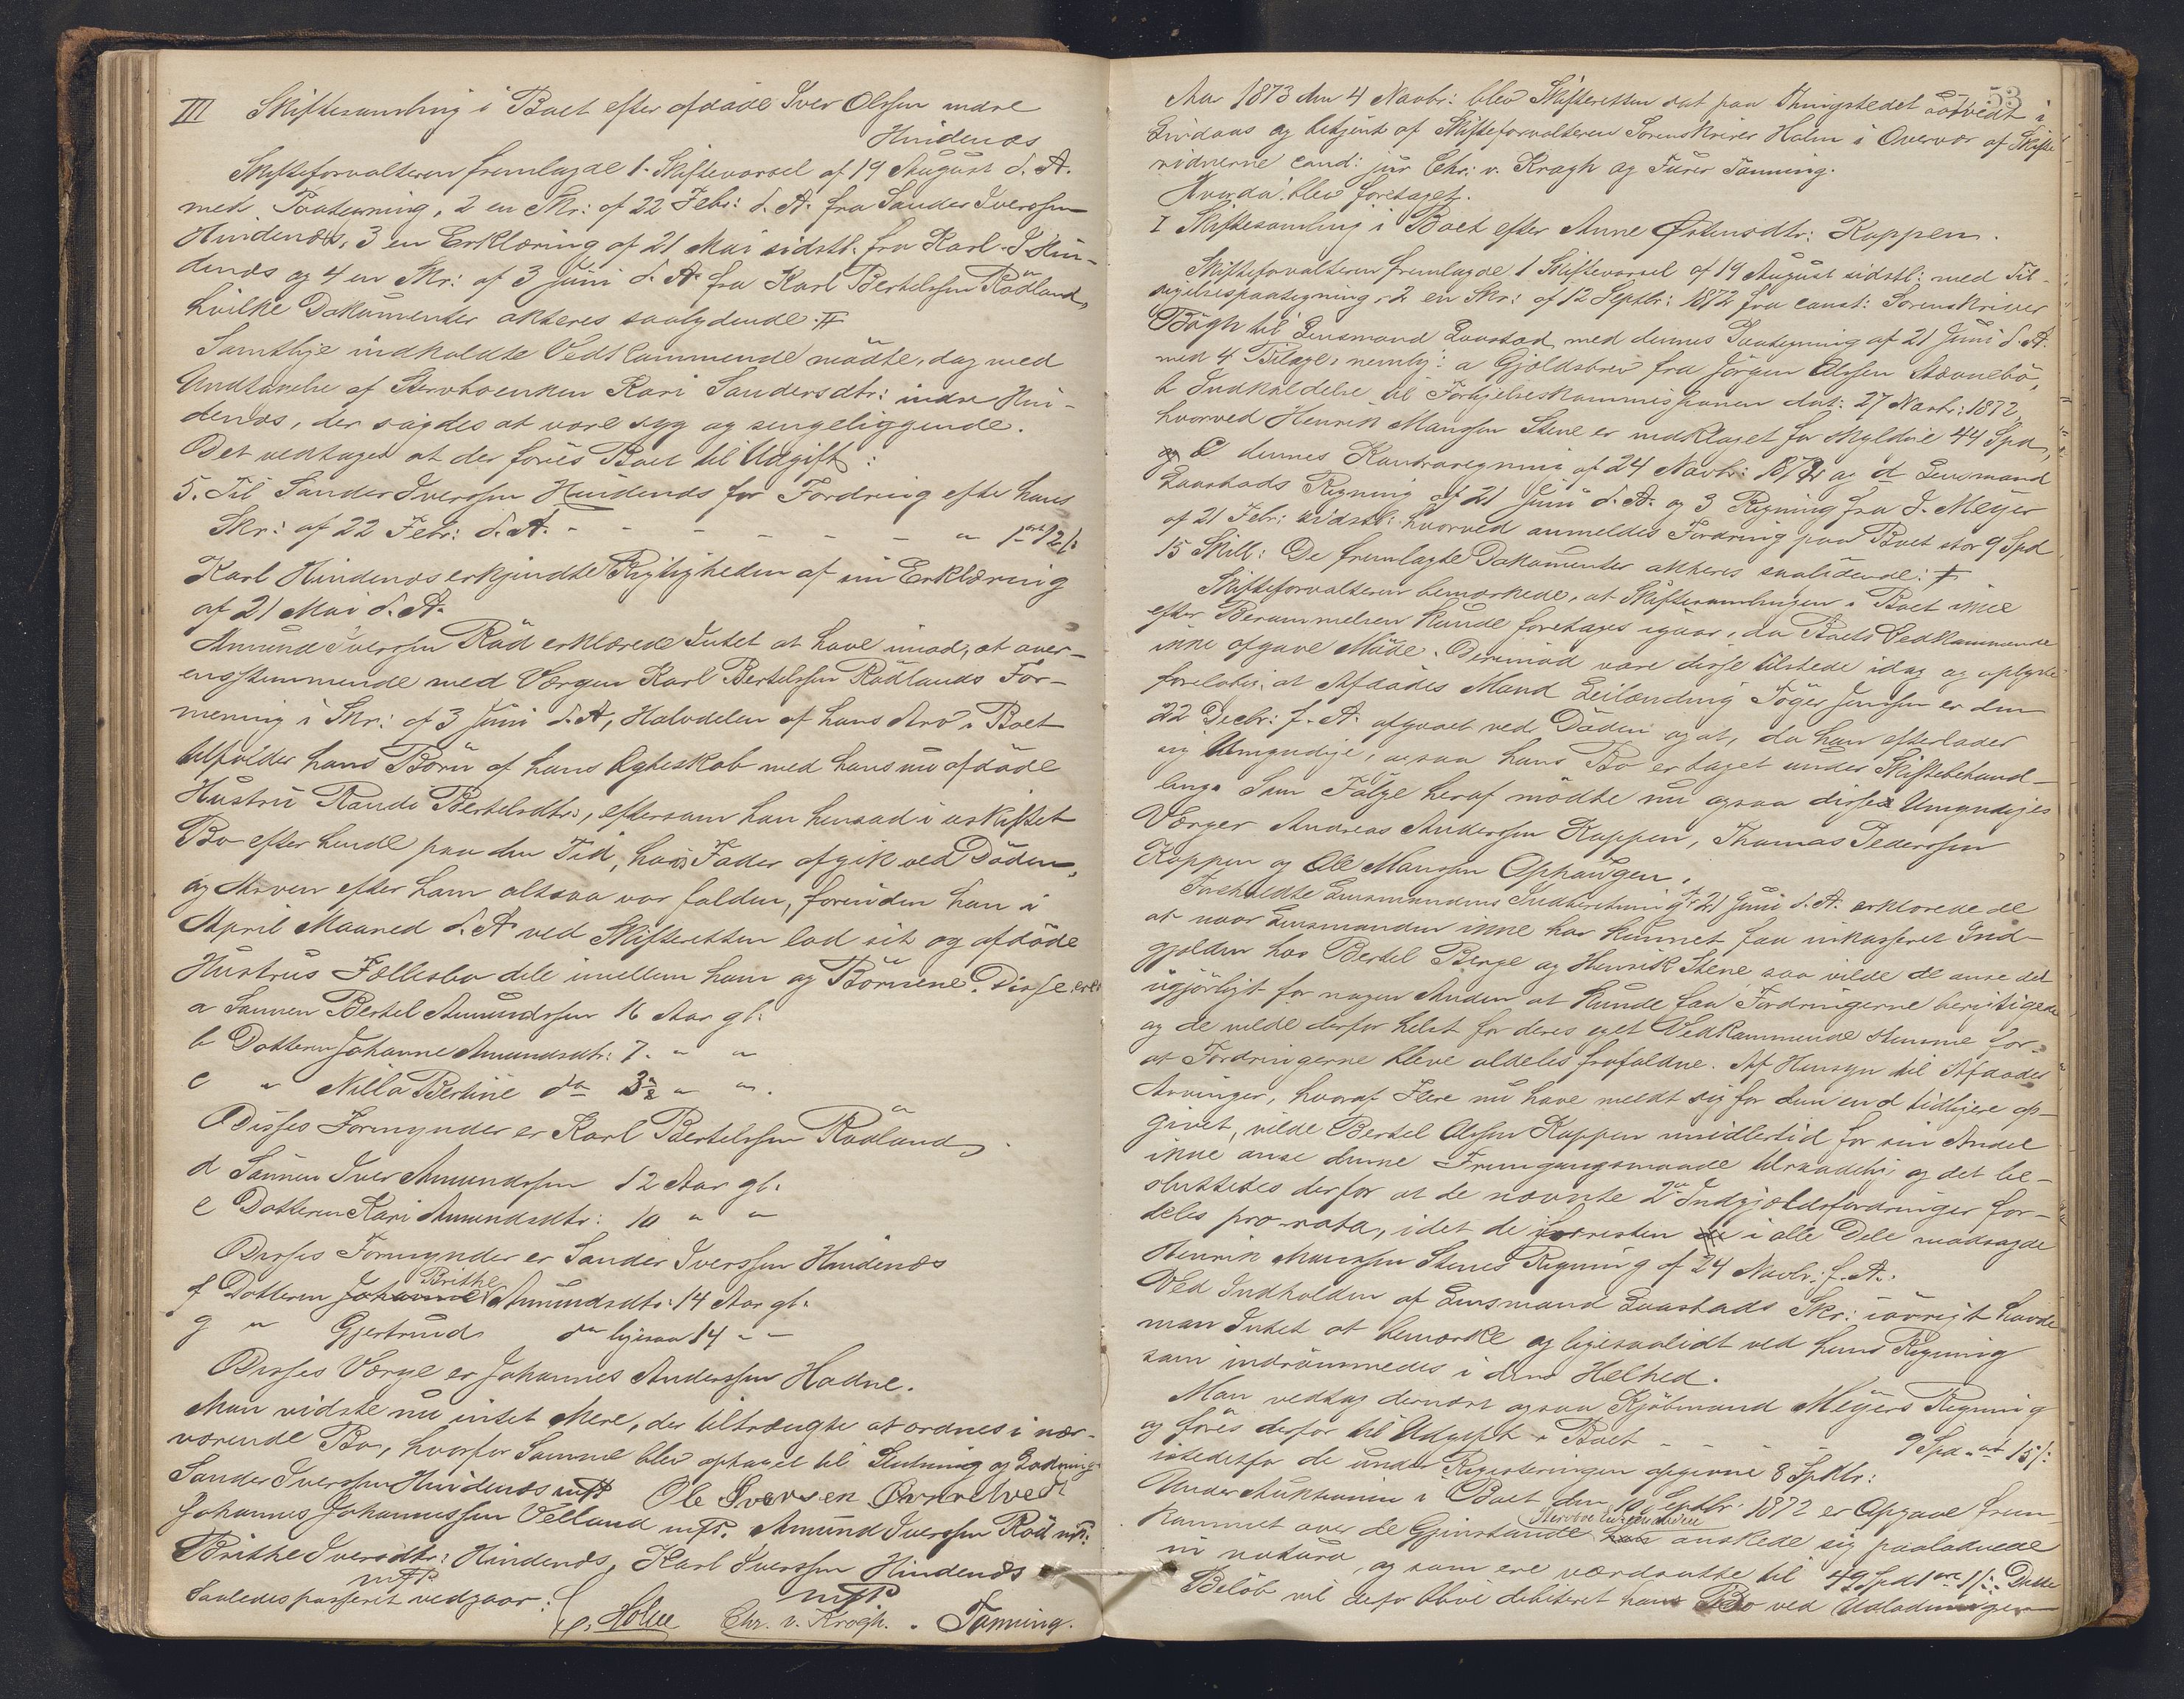 III Skiftesamling i Boet efter afdøde Iver Olssen indre
Hindenæs
Skifteforvalteren fremlagde 1. Skiftevarsel af 19 August d. A.
med Paategning, 2 en Skr: af 22 Febr: d. A. fra Sander Iverssen
Hindenæs, 3 en Erklæring af 21 Mai sidstl. fra Karl I. Hin-
denæs og 4 en Skr: af 3 Juni d. A. fra Karl Bertelssen Rødland,
hvilke Dokumenter akteres saalydende: #
Samtlige indkaldte Vedkommende mødte, dog med
Undtagelse af Stervboenken Kari Sandersdtr: indre Hin-
denæs, der sagdes at være syg og sengeliggende.
Det vedtages at der føres Boet til Udgift:
5. Til Sander Iverssen Hindenæs for Fordring efter hans
Skr: af 22 Febr: d. A. - - - - - - - " 1 ort 12 s:
Karl Hindenæs erkjendte Rigtigheden af sin Erklæring
af 21 Mai d. A.
Amund Iverssen Rød erklærede Intet at have imod, at over-
ensstemmende med Værgen Karl Bertelssen Rødlands For-
mening i Skr: af 3 Juni d. A., Halvdelen af hans Arv i Boet
tilfalder hans Børn af hans Egteskab med hans nu afdøde
Hustru Randi Bertelsdtr:, eftersom han hensad i uskiftet
Bo efter hende paa den Tid, hans Fader afgik ved Døden,
og Arven efter ham altsaa var falden, forinden han i
April Maaned d. A. ved Skifteretten lod sit og afdøde
Hustrus Fællesbo dele imellem ham og Børnene. Disse ere:
a Sønnen Bertel Amundssen 16 Aar gl:
b Datteren Johanne Amundsdtr: 7 " "
c " Nilla Bertine do 3½ " ".
Disses Formynder er Karl Bertelssen Rødland,
d Sønnen Iver Amundssen 12 Aar gl:
e Datteren Kari Amundsdtr: 10 " "
Disses Formynder er Sander Iverssen Hindenæs
Brithe
f Datteren Johanne Amundsdtr: 14 Aar gl:
g " Gjertrud do ligesaa 14 " "
Disses Værge er Johannes Anderssen Hodne.
Man vidste nu intet Mere, der tiltrængte at ordnes i nær-
værende Bo, hvorfor Samme blev optaget til Slutning og Lodning.
Sander Iverssen Hindenæs mfP Ole Iversen
Johannes Johannessen Velland mfP. Amund Iverssen Rød mfP:
Brithe Iversdtr: Hindenæs, Karl Iverssen Hindenæs
mfP mfP
Saaledes passeret vedgaar:
Holm Chr. v. Krogh. Tanning.
53
Aar 1873 den 4 Novbr: blev Skifteretten sat paa Thingstedet i
Lindaas og betjent af Skifteforvalteren Sorenskriver Holm i Overvær af Skifte-
vidnerne cand: jur Chr: v. Krogh og Furer Tanning.
Hvorda blev foretaget.
I Skiftesamling i Boet efter Anne Østensdtr: Koppen.
Skifteforvalteren fremlagde 1 Skiftevarsel af 19 August sidstl: med Til-
sigelsespaategning, 2 en Skr: af 12 Septbr: 1872 fra const: Sorenskriver
Bøgh til Lensmand Laastad, med dennes Paategning af 21 Juni d. A.
med 4 Bilage, nemlig: a Gjældsbrev fra Jørgen Olssen
b Indkaldelse til Forligelseskommissionen dat: 27 Novbr: 1872,
hvorved Henrik Monssen Stene er indklaget for skyldige 44 Spd,
c dennes Kontraregning af 24 Novbr: 1872 og d Lensmand
Laastads Regning af 21 Juni d. A. og 3 Regning fra J. Meyer
af 21 Febr: sidstl: hvorved anmeldes Fordring paa Boet stor 9 Spd
15 Skill: De fremlagte Dokumenter akteres saalydende: #
Skifteforvalteren bemærkede, at Skiftesamlingen i Boet ikke
efter Berammelsen kunde foretages igaar, da Boets Vedkommende
ikke afgave Møde. Derimod vare disse tilstede idag og oplyste
foreløbig, at Afdødes Mand Leilænding Tøger Jenssen er den
22 Decbr: f. A. afgaaet ved Døden og at, da han efterlader
sig Umyndige, ogsaa hans Bo er taget under Skiftebehand-
ling. Som Følge heraf mødte nu ogsaa disses Umyndiges
Værger Andreas Anderssen Koppen, Thomas Pederssen
Koppen og Ole Monsson Ophaugen.
Foreholdte Lensmandens Indberetning af 21 Juni d. A. erklærede de
at naar Lensmanden ikke har kunnet faa inkasseret Ind-
gjælden hos Bertel Berge og Henrik Stene saa vilde de anse det
ugjørligt for nogen Anden at kunde faa Fordringerne berigtigede
og de vilde derfor helst for deres eget Vedkommende stemme for
at Fordringerne bleve aldeles frafaldne. Af Hensyn til Afdødes
Arvinger, hvoraf Flere nu have meldt sig for dem end tidligere op-
givet, vilde Bertel Olssen Koppen imidlertid for sin Andel
ikke anse denne Fremgangsmaade tilraadelig og det be-
sluttedes derfor at de nævnte 2de Indgjældsfordringer for-
deles pro rata, idet de forresten i alle Dele modsagde
Henrik Monssen Stenes Regning af 24 Novbr: f. A.
Ved Indholdet af Lensmand Laastads Skr: iøvrigt havde
man Intet at bemærke og ligesaalidt ved hans Regning
som indrømmedes i dens Helhed.
Man vedtog dernæst ogsaa Kjøbmand Meyers Regning
og føres derfor til Udgift i Boet - - - - 9 Spd " ort 15 s:
istedetfor de under Registreringen opgivne 8 Spdlr:
Under Auktionen i Boet den 10 Septbr: 1872 er Opgave frem
kommet over de Gjenstande ønskede sig paaladuede
in natura og som ere værdsatte til 49 Spd 1 ort 1 s: Dette
Beløb vil derfor blive debiteret hans Bo ved Udlodningen